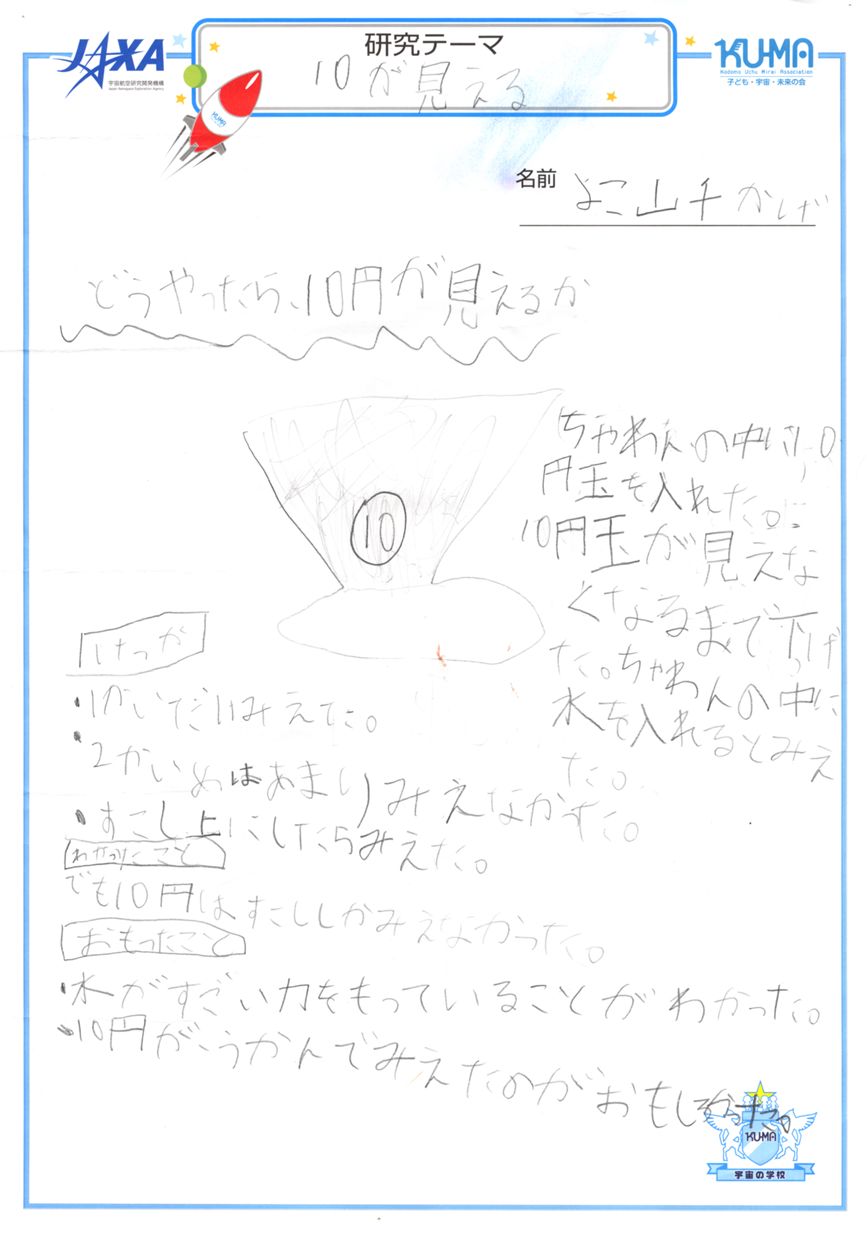 JAXA
宇宙航空研究開発機構
Japan Aerospace Exploration Agency
研究テーマ
10が見える
KUMA
Kodomo Uchu Mirai Association
子ども・宇宙・未来の会
KUMA
名前 よこ山千かげ
どうやったら、10円が見えるか
10
ちゃわんの中に10
円玉を入れた。
10円玉が見えな
くなるまで下げ
た。ちゃわんの中に
水を入れるとみえ
た。
けっか
・1かいだけみえた。
・2かいめはあまりみえなかった。
・すこし上にしたらみえた。
わかったこと
でも10円はすこししかみえなかった。
おもったこと
・水がすごい力をもっていることがわかった。
・10円がうかんでみえたのがおもしろかった。
KUMA
宇宙の学校